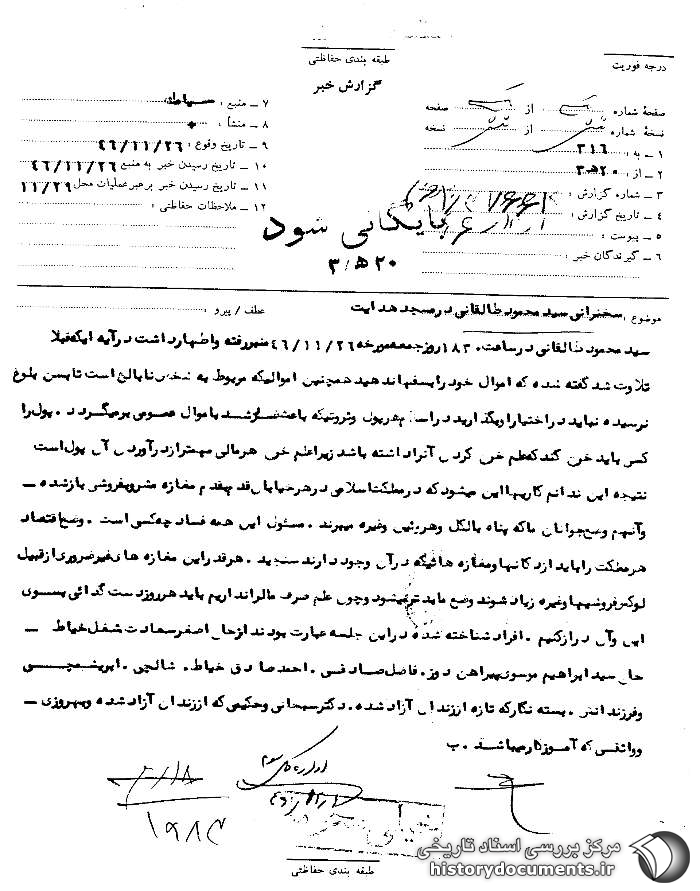 طبقه بندی حفاظتی
درجه فوریت
گزارش خبر
صفحهٔ شماره یک از یک صفحه
نسخهٔ شماره از نسخه
۱ ـ به : ۳۱۶
۲ ـ از : ۲۰ ه ۳
۳ ـ شماره گزارش :
۴ ـ تاریخ گزارش :
۵ ـ پیوست :
۶ ـ گیرندگان خبر :
۷ ـ منبع :
۸ ـ منشأ :
۹ ـ تاریخ وقوع : ۴۶/۱۱/۲۶
۱۰ ـ تاریخ رسیدن خبر به منبع ۴۶/۱۱/۲۶
۱۱ ـ تاریخ رسیدن خبر برهبر عملیات محل ۱۱/۲۹
۱۲ ـ ملاحظات حفاظتی :
بایگانی شود
۲۰ ه ۳
موضوع : سخنرانی سید محمود طالقانی در مسجد هدایت
عطف / پیرو :
سید محمود طالقانی در ساعت ۱۸۳۰ روز جمعه مورخه ۴۶/۱۱/۲۶ منبر رفته و اظهار داشت در آیه ایکه قبلا
تلاوت شد گفته شده که اموال خود را بسفها ندهید همچنین اموالیکه مربوط به شخص نابالغ است تا بسن بلوغ
نرسیده نباید در اختیار او بگذارید در اسلام هر پول و ثروتیکه باعث رشد باموال عمومی برمیگردد . پول را
کسی باید خرج کند که علم خرج کردن آنرا داشته باشد زیرا علم خرج هر مالی مهمتر از درآوردن آن پول است
نتیجه این ندانم کاریها این میشود که در مملکت اسلامی در هر خیابان قدم بقدم مغازه مشروبفروشی باز شده ـ
و آنهم وضع جوانان ما که پناه بالکل و هروئین و غیره میبرند . مسئول این همه فساد چه کسی است . وضع اقتصاد
هر مملکت را باید از دکانها و مغازه هائیکه در آن وجود دارند سنجید . هر قدر این مغازه های غیر ضروری از قبیل
لوکس فروشیها و غیره زیاد شوند وضع ما بدتر میشود و چون علم صرف مال را نداریم باید هر روز دست گدائی بسوی
این و آن دراز کنیم . افراد شناخته شده در این جلسه عبارت بودند از حاج اصغر سعادت شغل خیاط ـ
حاج سید ابراهیم موسوی پیراهن دوز . فاضل صادقی . احمد صادق خیاط . شالچی . ابریشمچی
و فرزندانش . بسته نگار که تازه از زندان آزاد شده . دکتر سبحانی و حکیمی که از زندان آزاد شده و بهروزی ـ
و واثقی که آموزگار میباشد . ب
اداره کل سوم
۱۹۸۳
طبقه بندی حفاظتی
مرکز بررسی اسناد تاریخی
historydocuments.ir